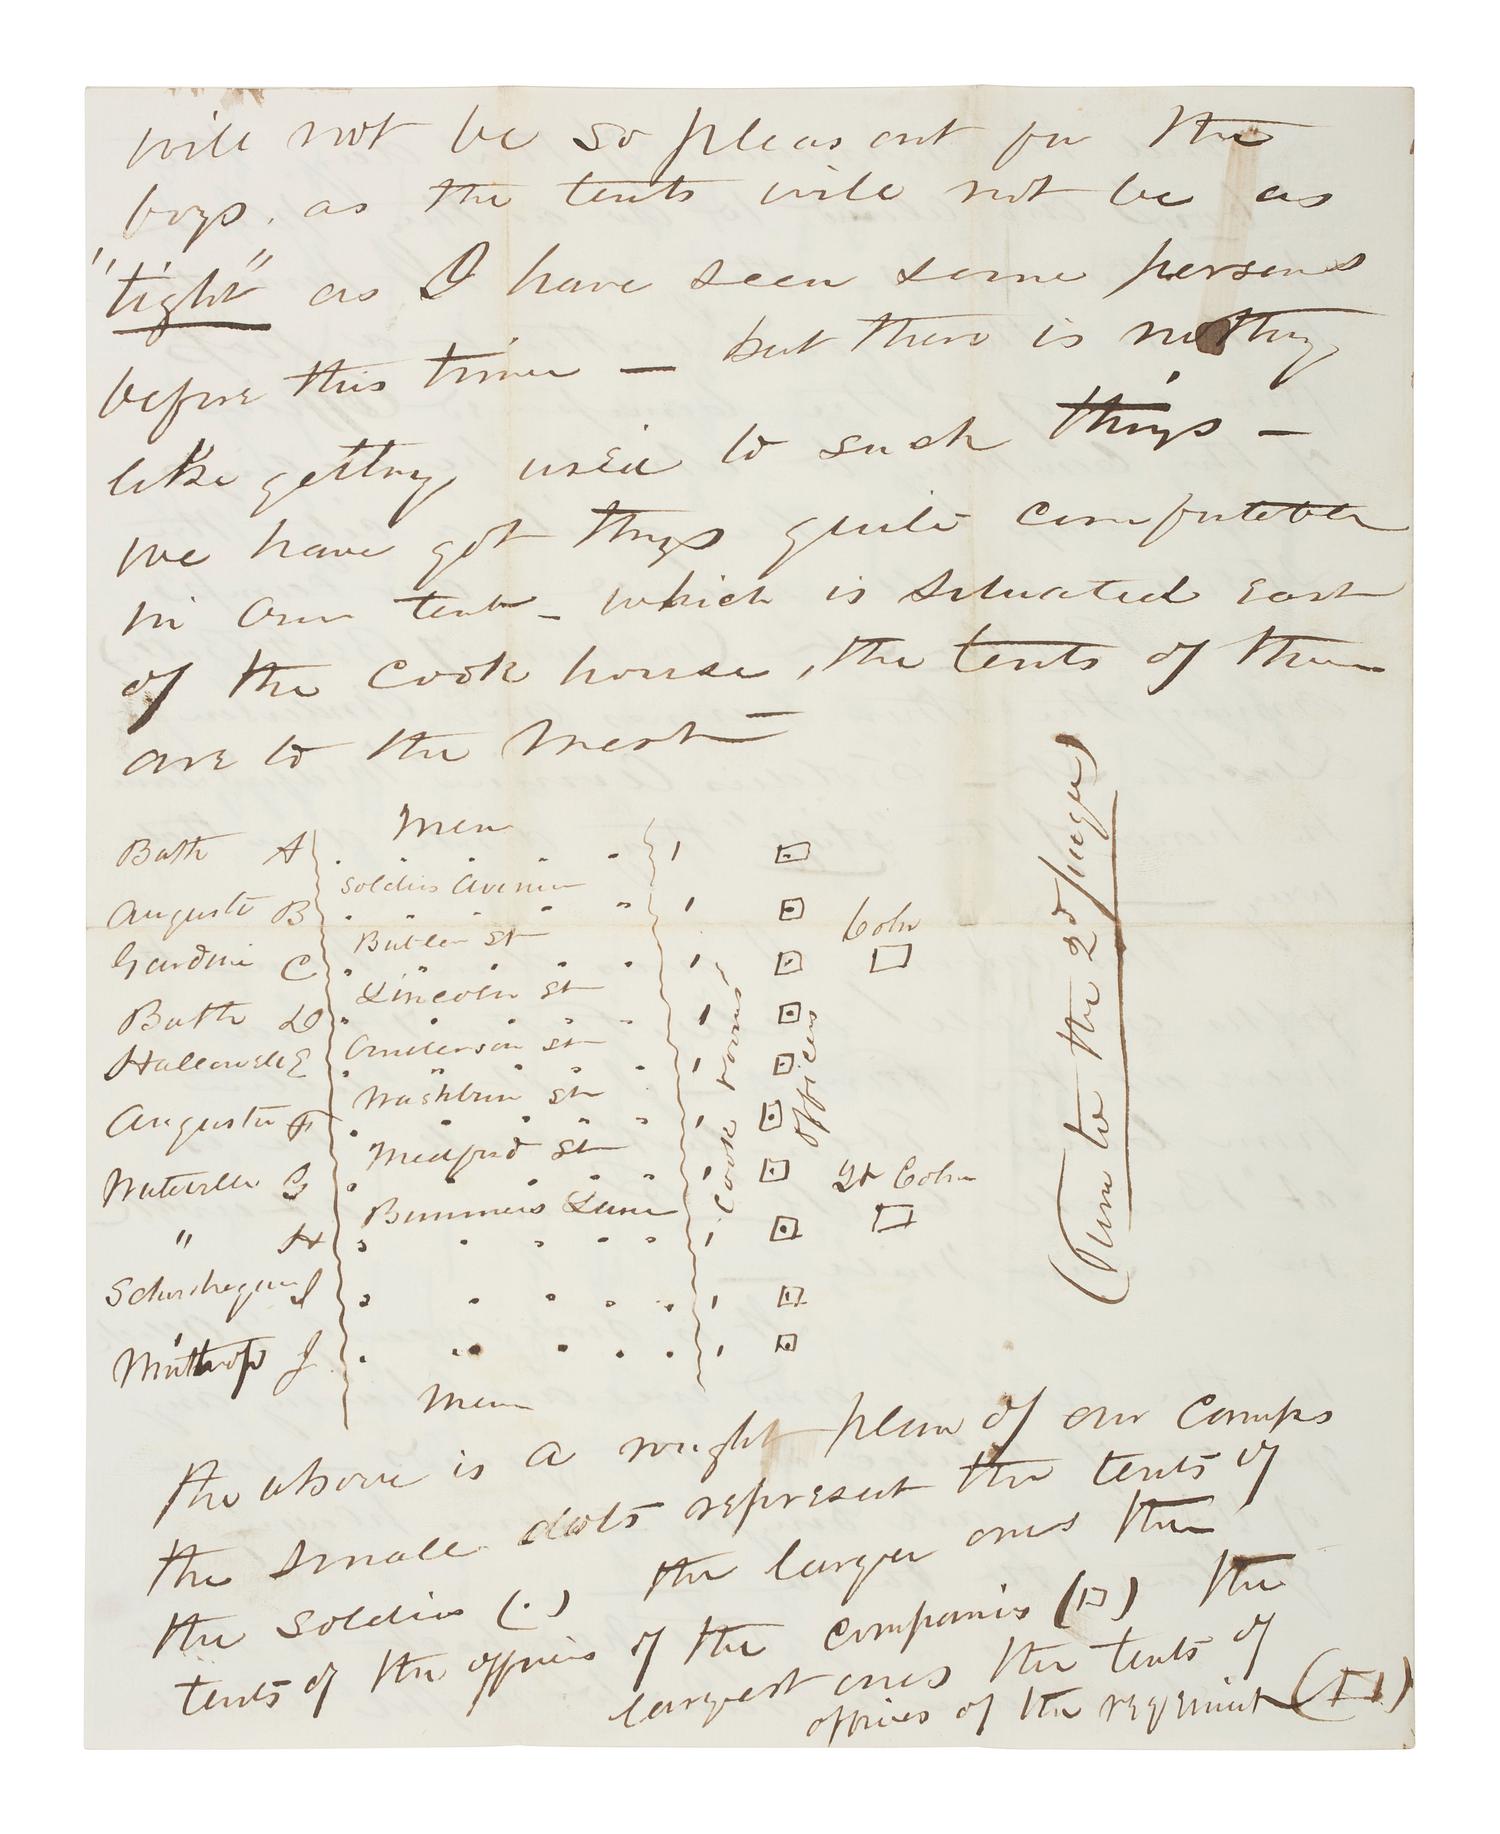 will not be so pleasant for the
boys. as the tents will not be as
"tight" as I have seen some persons
before this time — but there is nothing
like getting used to such things —
we have got things quite comfortable
in our tent — which is situated East
of the Cook house, the tents of them
are to the West —
Men
Bath A
Soldiers Avenue
Augusta B
Butler St
Gardiner C
Lincoln St
Bath D
Anderson St
Hallowell E
Washburn St
Augusta F
Medford St
Waterville G
Bummers Lane
" H
Skowhegan I
Winthrop J
Men
Cook rooms
officers
Coln
Lt Coln
(Turn to the 2d page)
the above is a rough plan of our camps
the small dots represent the tents of
the soldiers (.) the larger ones the
tents of the officers of the companies (□) the
largest ones the tents of
offices of the regiment (□)